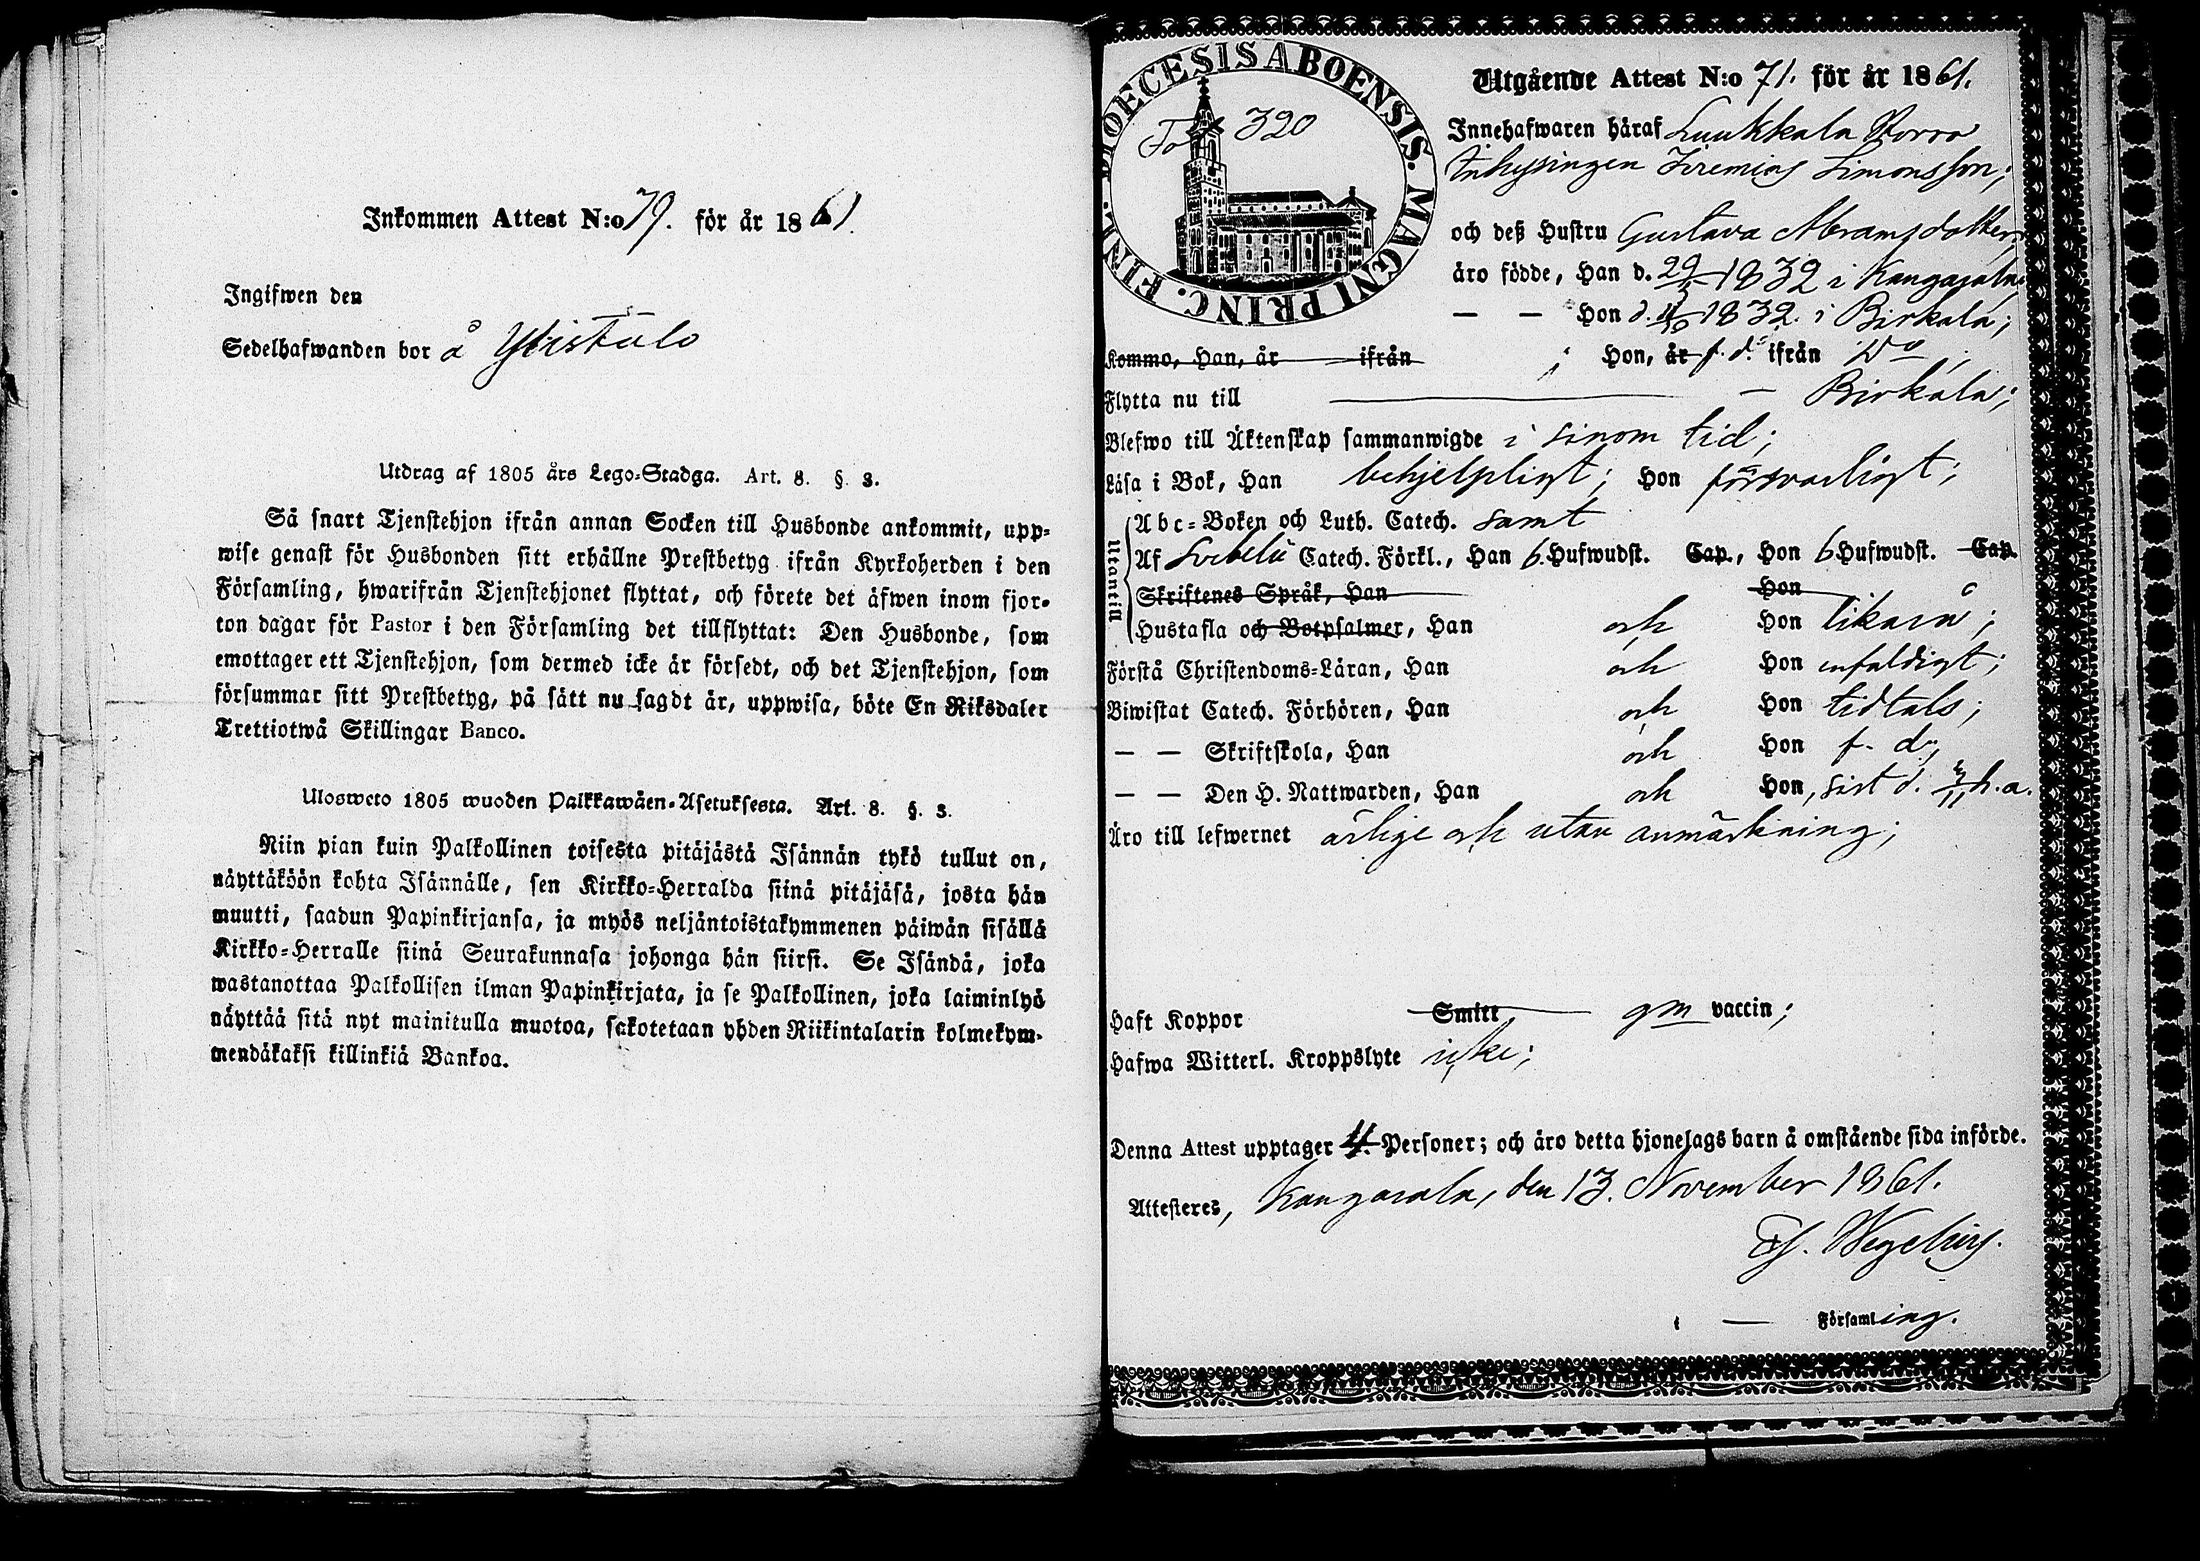 Inkommen Attest N:o 79. för år 1861.
Ingifwen den
Sedelhafwanden bor å Ylistalo
Utdrag af 1805 års Lego-Stadga. Art. 8. §. 3.
Så snart Tjenstehjon ifrån annan Socken till Husbonde ankommit, upp-
wise genast för Husbonden sitt erhållne Prestbetyg ifrån Kyrkoherden i den
Församling, hwarifrån Tjenstehjonet flyttat, och förete det äfwen inom fjor-
ton dagar för Pastor i den Församling det tillflyttat: Den Husbonde, som
emottager ett Tjenstehjon, som dermed icke är försedt, och det Tjenstehjon, som
försummar sitt Prestbetyg, på sätt nu sagdt är, uppwisa, böte En Riksdaler
Trettiotwå Skillingar Banco.
Ulosweto 1805 wuoden Palkkawäen-Asetuksesta. Art. 8. §. 3.
Niin pian kuin Palkollinen toisesta pitäjästä Isännän tykö tullut on,
näyttäköön kohta Isännälle, sen Kirkko-Herralda siinä pitäjäsä, josta hän
muutti, saadun Papinkirjansa, ja myös neljäntoistakymmenen päiwän sisällä
Kirkko-Herralle siinä Seurakunnasa johonga hän siirsi. Se Isändä, joka
wastanottaa Palkollisen ilman Papinkirjata, ja se Palkollinen, joka laiminlyö
näyttää sitä nyt mainitulla muotoa, sakotetaan yhden Riikintalarin kolmekym-
mendäkaksi killinkiä Bankoa.
DIOECESIS ABOENSIS. MAGNI PRINC. FINL.
Fol 320
Utgående Attest N:o 71. för år 1861.
Innehafwaren häraf Luukkala Norro
Inhysingen Jeremias Simonsson;
och deß Hustru Gustava Abramsdotter
äro födde, Han d. 29/3 1832 i Kangasala
— — Hon d. 11/10 1832. i Birkala;
Kommo, Han, år ifrån ; Hon, år f. d. ifrån Do;
Flytta nu till — Birkala;
Blefwo till Äktenskap sammanwigde i sinom tid;
Läsa i Bok, Han behjelpligt; Hon försvarligt;
Utantill
Abc-Boken och Luth. Catech. samt
Af Svebelii Catech. Förkl., Han 6. Hufwudst. Cap., Hon 6 Hufwudst. Cap.
Skriftenes Språk, Han Hon
Hustafla och Botpsalmer, Han och Hon likaså;
Förstå Christendoms-Läran, Han och Hon enfaldigt;
Biwistat Catech. Förhören, Han och Hon tidtals;
— — Skriftskola, Han och Hon f. d.;
— — Den H. Nattwarden, Han och Hon, sist d. 3/11 h. a.
Äro till lefwernet ärlige och utan anmärkning;
Haft Koppor Smitt gm vaccin;
Hafwa Witterl. Kroppslyte icke;
Denna Attest upptager 4. Personer; och äro detta hjonelags barn å omstående sida införde.
Attesteres, Kangasala, den 13. November 1861.
Wegelius.
— Församling.